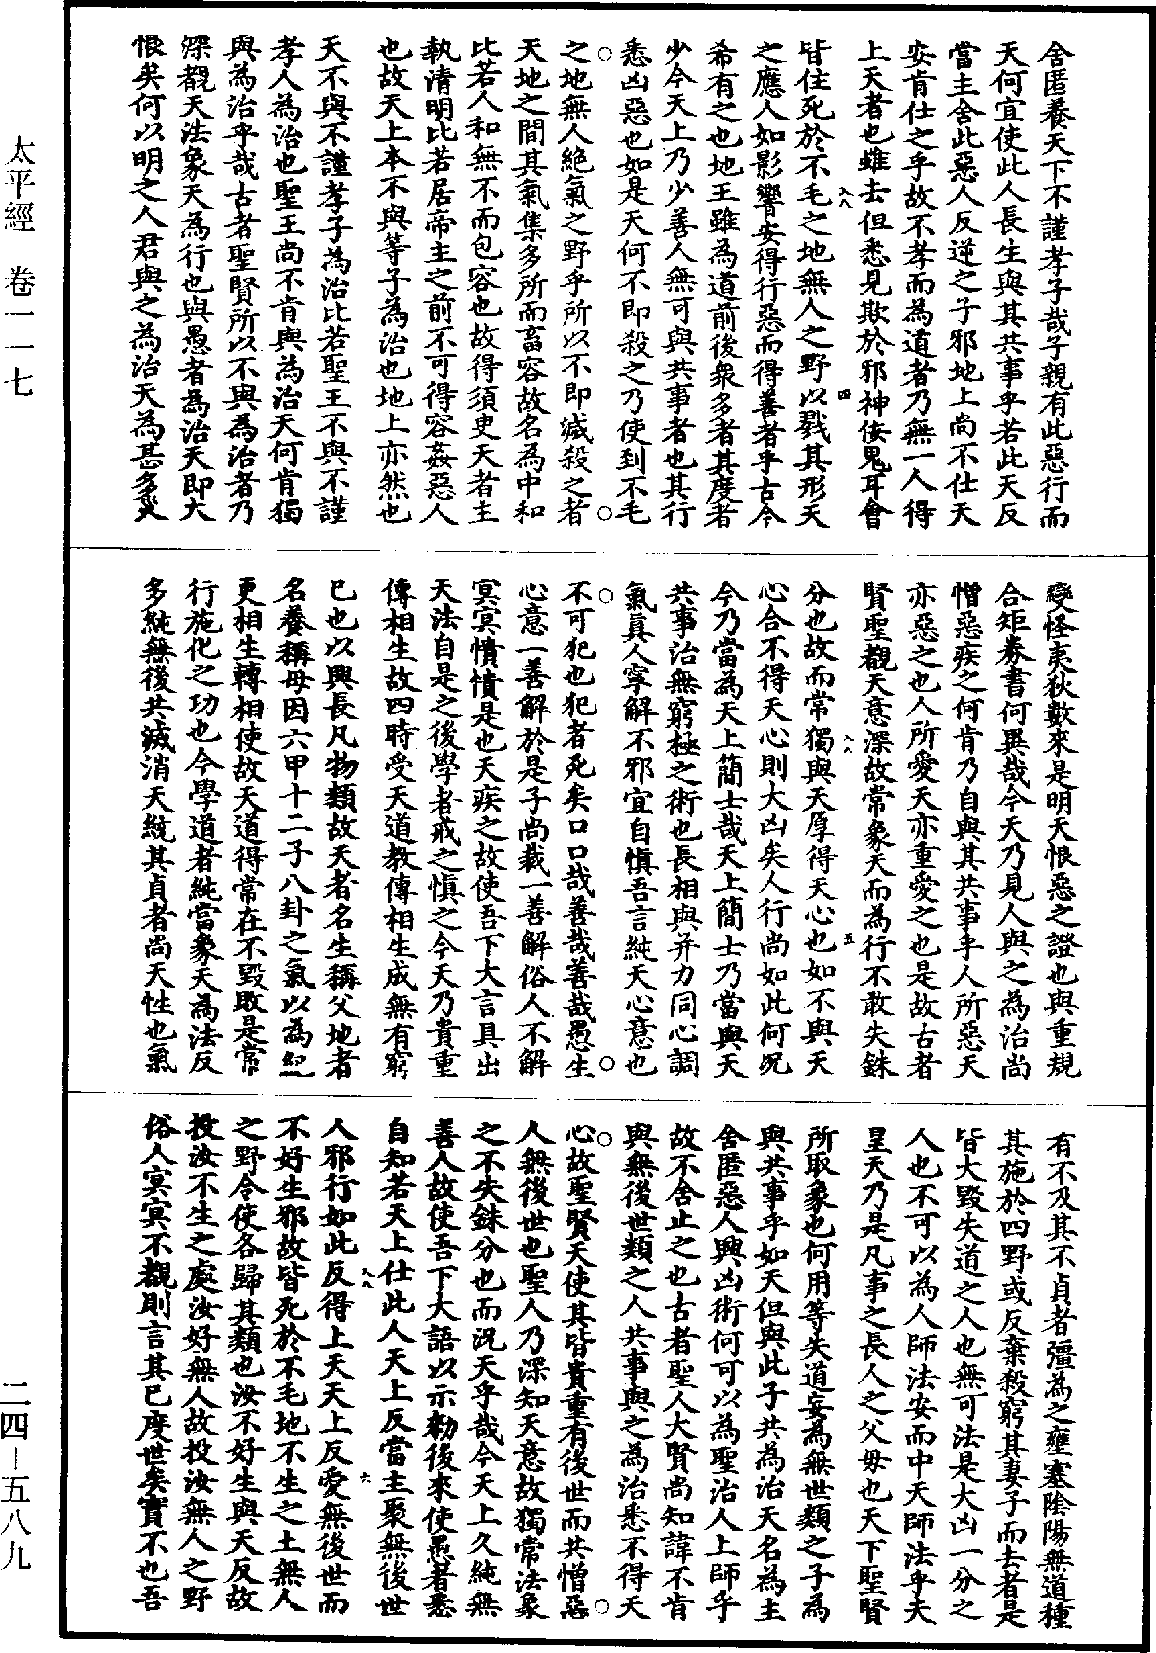 舍匿養天下不謹孝子哉子親有此惡行而
天何宜使此人長生與其共事乎若此天反
當主舍此惡人反逆之子邪地上尚不仕天
安肯仕之乎故不孝而為道者乃無一人得
上天者也雖去但悉見欺於邪神佞鬼耳會
皆住死於不毛之地無人之野以戮其形天
之應人如影響安得行惡而得善者乎古今
希有之也地王雖為道前後眾多者其度者
少今天上乃少善人無可與共事者也其行
悉凶惡也如是天何不即殺之乃使到不毛
之地無人絕氣之野乎所以不即滅殺之者
天地之間其氣集多所而畜容故名為中和
比若人和無不而包容也故得須臾天者主
執清明比若居帝主之前不可得容姦惡人
也故天上本不與等子為治也地上亦然也
天不與不謹孝子為治比若聖王不與不謹
孝人為治也聖王尚不肯與為治天何肯獨
與為治乎哉古者聖賢所以不與為治者乃
深觀天法象天為行也與愚者為治天即大
恨矣何以明之人君與之為治天為甚多災
變怪夷狄數來是明天恨惡之證也與重規
合矩券書何異哉今天乃見人與之為治尚
憎惡疾之何肯乃自與其共事乎人所惡天
亦惡之也人所愛天亦重愛之也是故古者
賢聖觀天意深故常象天而為行不敢失銖
分也故而常獨與天厚得天心也如不與天
心合不得天心則大凶矣人行尚如此何況
今乃當為天上簡士哉天上簡士乃當與天
共事治無窮極之術也長相與并力同心調
氣真人寧解不邪宜自慎吾言純天心意也
不可犯也犯者死矣口口哉善哉善哉愚生
心意一善解於是子尚裁一善解俗人不解
冥冥憒憒是也天疾之故使吾下大言具出
天法自是之後學者戒之慎之今天乃貴重
傳相生故四時受天道教傳相生成無有窮
已也以興長凡物類故天者名生稱父地者
名養稱母因六甲十二子八卦之氣以為紀
更相生轉相使故天道得常在不毀敗是常
行施化之功也今學道者純當象天為法反
多純無後共滅消天統其貞者尚天性也氣
有不及其不貞者彊為之壅塞陰陽無道種
其施於四野或反棄殺窮其妻子而去者是
皆大毀失道之人也無可法是大凶一分之
人也不可以為人師法安而中天師法乎夫
皇天乃是凡事之長人之父母也天下聖賢
所取象也何用等失道妄為無世類之子為
與共事乎如天但與此子共為治天名為主
舍匿惡人興凶術何可以為聖治人上師乎
故不舍止之也古者聖人大賢尚知諱不肯
與無後世類之人共事與之為治悉不得天
心故聖賢天使其皆貴重有後世而共憎惡
人無後世也聖人乃深知天意故獨常法象
之不失銖分也而況天乎哉今天上久純無
善人故使吾下大語以示勑後來使愚者悉
自知若天上仕此人天上反當主聚無後世
人邪行如此反得上天天上反愛無後世而
不好生邪故皆死於不毛地不生之土無人
之野令使各歸其類也汝不好生與天反故
投汝不生之處汝好無人故投汝無人之野
俗人冥冥不觀則言其已度世矣實不也吾
太平經 卷一一七
二四—五八九